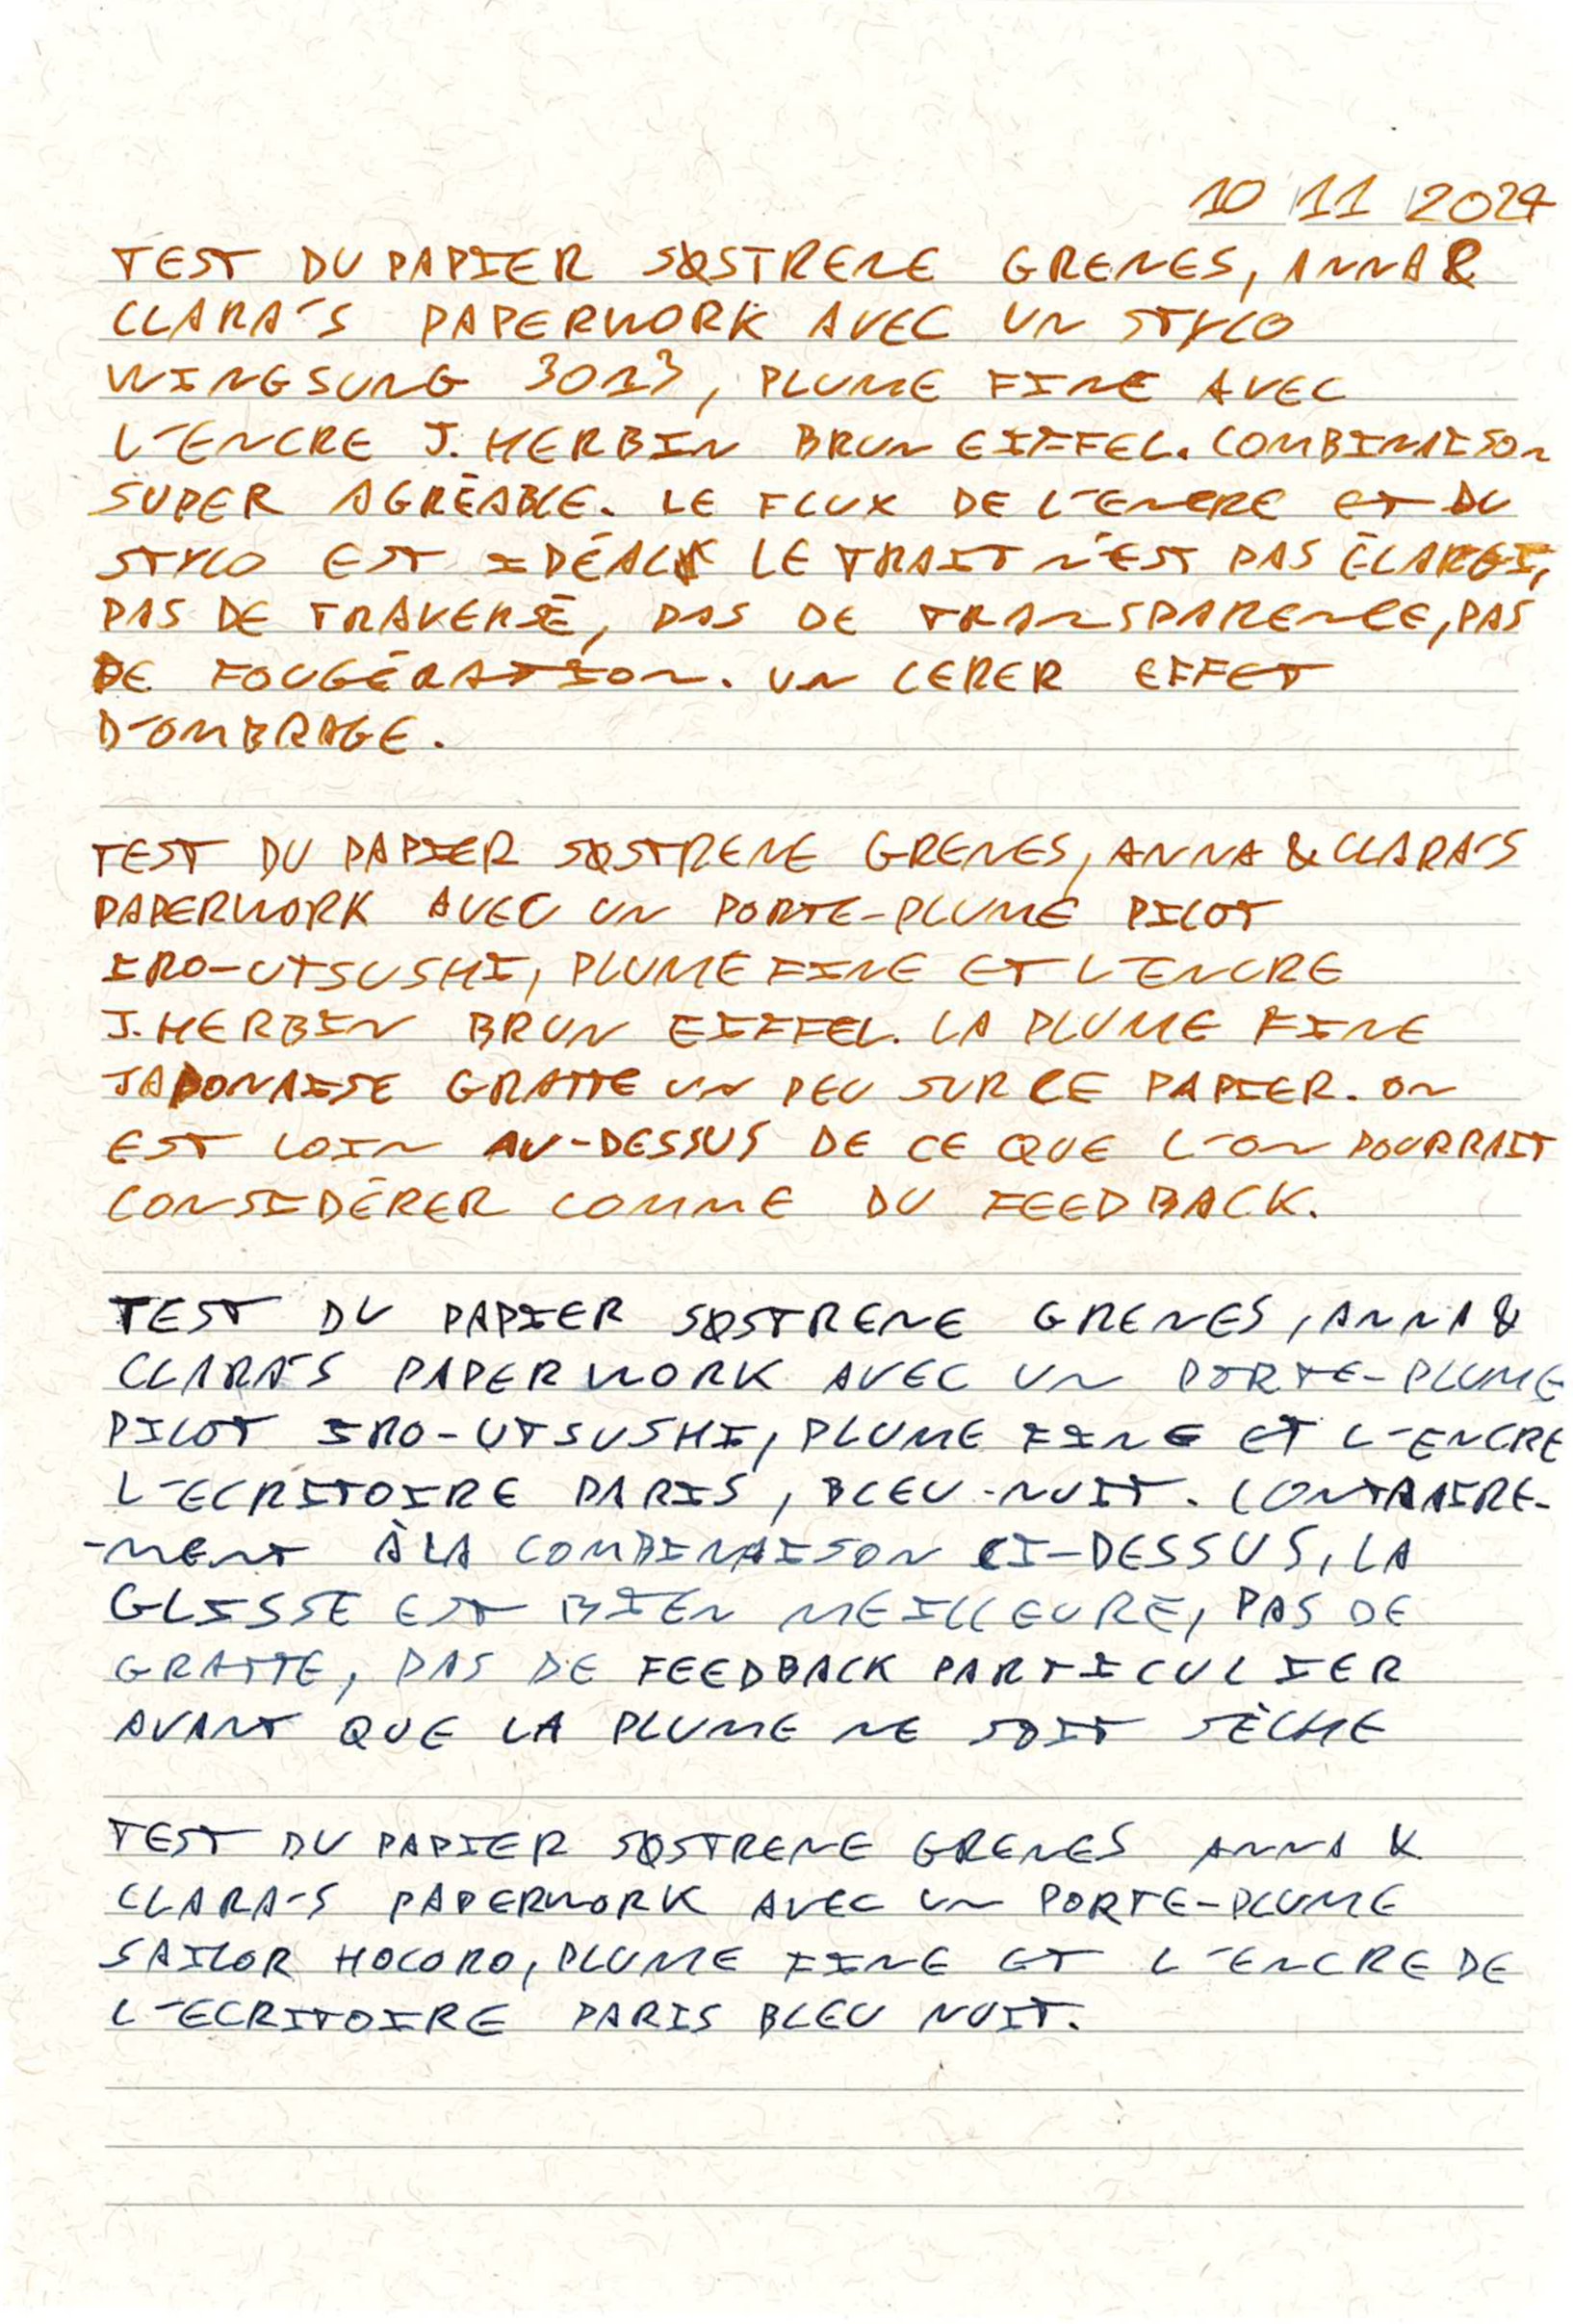 10 11 2024
TEST DU PAPIER SØSTRENE GRENES, ANNA &
CLARA'S PAPERWORK AVEC UN STYLO
WINGSUNG 3013, PLUME FINE AVEC
L'ENCRE J.HERBIN BRUN EIFFEL. COMBINAISON
SUPER AGRÉABLE. LE FLUX DE L'ENCRE ET DU
STYLO EST IDÉAL LE TRAIT N'EST PAS ÉLARGI,
PAS DE TRAVERSÉ, PAS DE TRANSPARENCE, PAS
DE FOUGÉRATION. UN LÉRER EFFET
D'OMBRAGE.
TEST DU PAPIER SØSTRENE GRENES, ANNA & CLARA'S
PAPERWORK AVEC UN PORTE-PLUME PILOT
IRO-UTSUSHI, PLUME FINE ET L'ENCRE
J.HERBIN BRUN EIFFEL. LA PLUME FINE
JAPONAISE GRATTE UN PEU SUR CE PAPIER. ON
EST LOIN AU-DESSUS DE CE QUE L'ON POURRAIT
CONSIDÉRER COMME DU FEEDBACK.
TEST DU PAPIER SØSTRENE GRENES, ANNA &
CLARA'S PAPERWORK AVEC UN PORTE-PLUME
PILOT IRO-UTSUSHI, PLUME FINE ET L'ENCRE
L'ECRITOIRE PARIS, BLEU-NUIT. CONTRAIRE-
-MENT À LA COMBINAISON CI-DESSUS, LA
GLISSE EST BIEN MEILLEURE, PAS DE
GRATTE, PAS DE FEEDBACK PARTICULIER
AVANT QUE LA PLUME NE SOIT SÈCHE
TEST DU PAPIER SØSTRENE GRENES ANNA &
CLARA'S PAPERWORK AVEC UN PORTE-PLUME
SAILOR HOCORO, PLUME FINE ET L'ENCRE DE
L'ECRITOIRE PARIS BLEU NUIT.